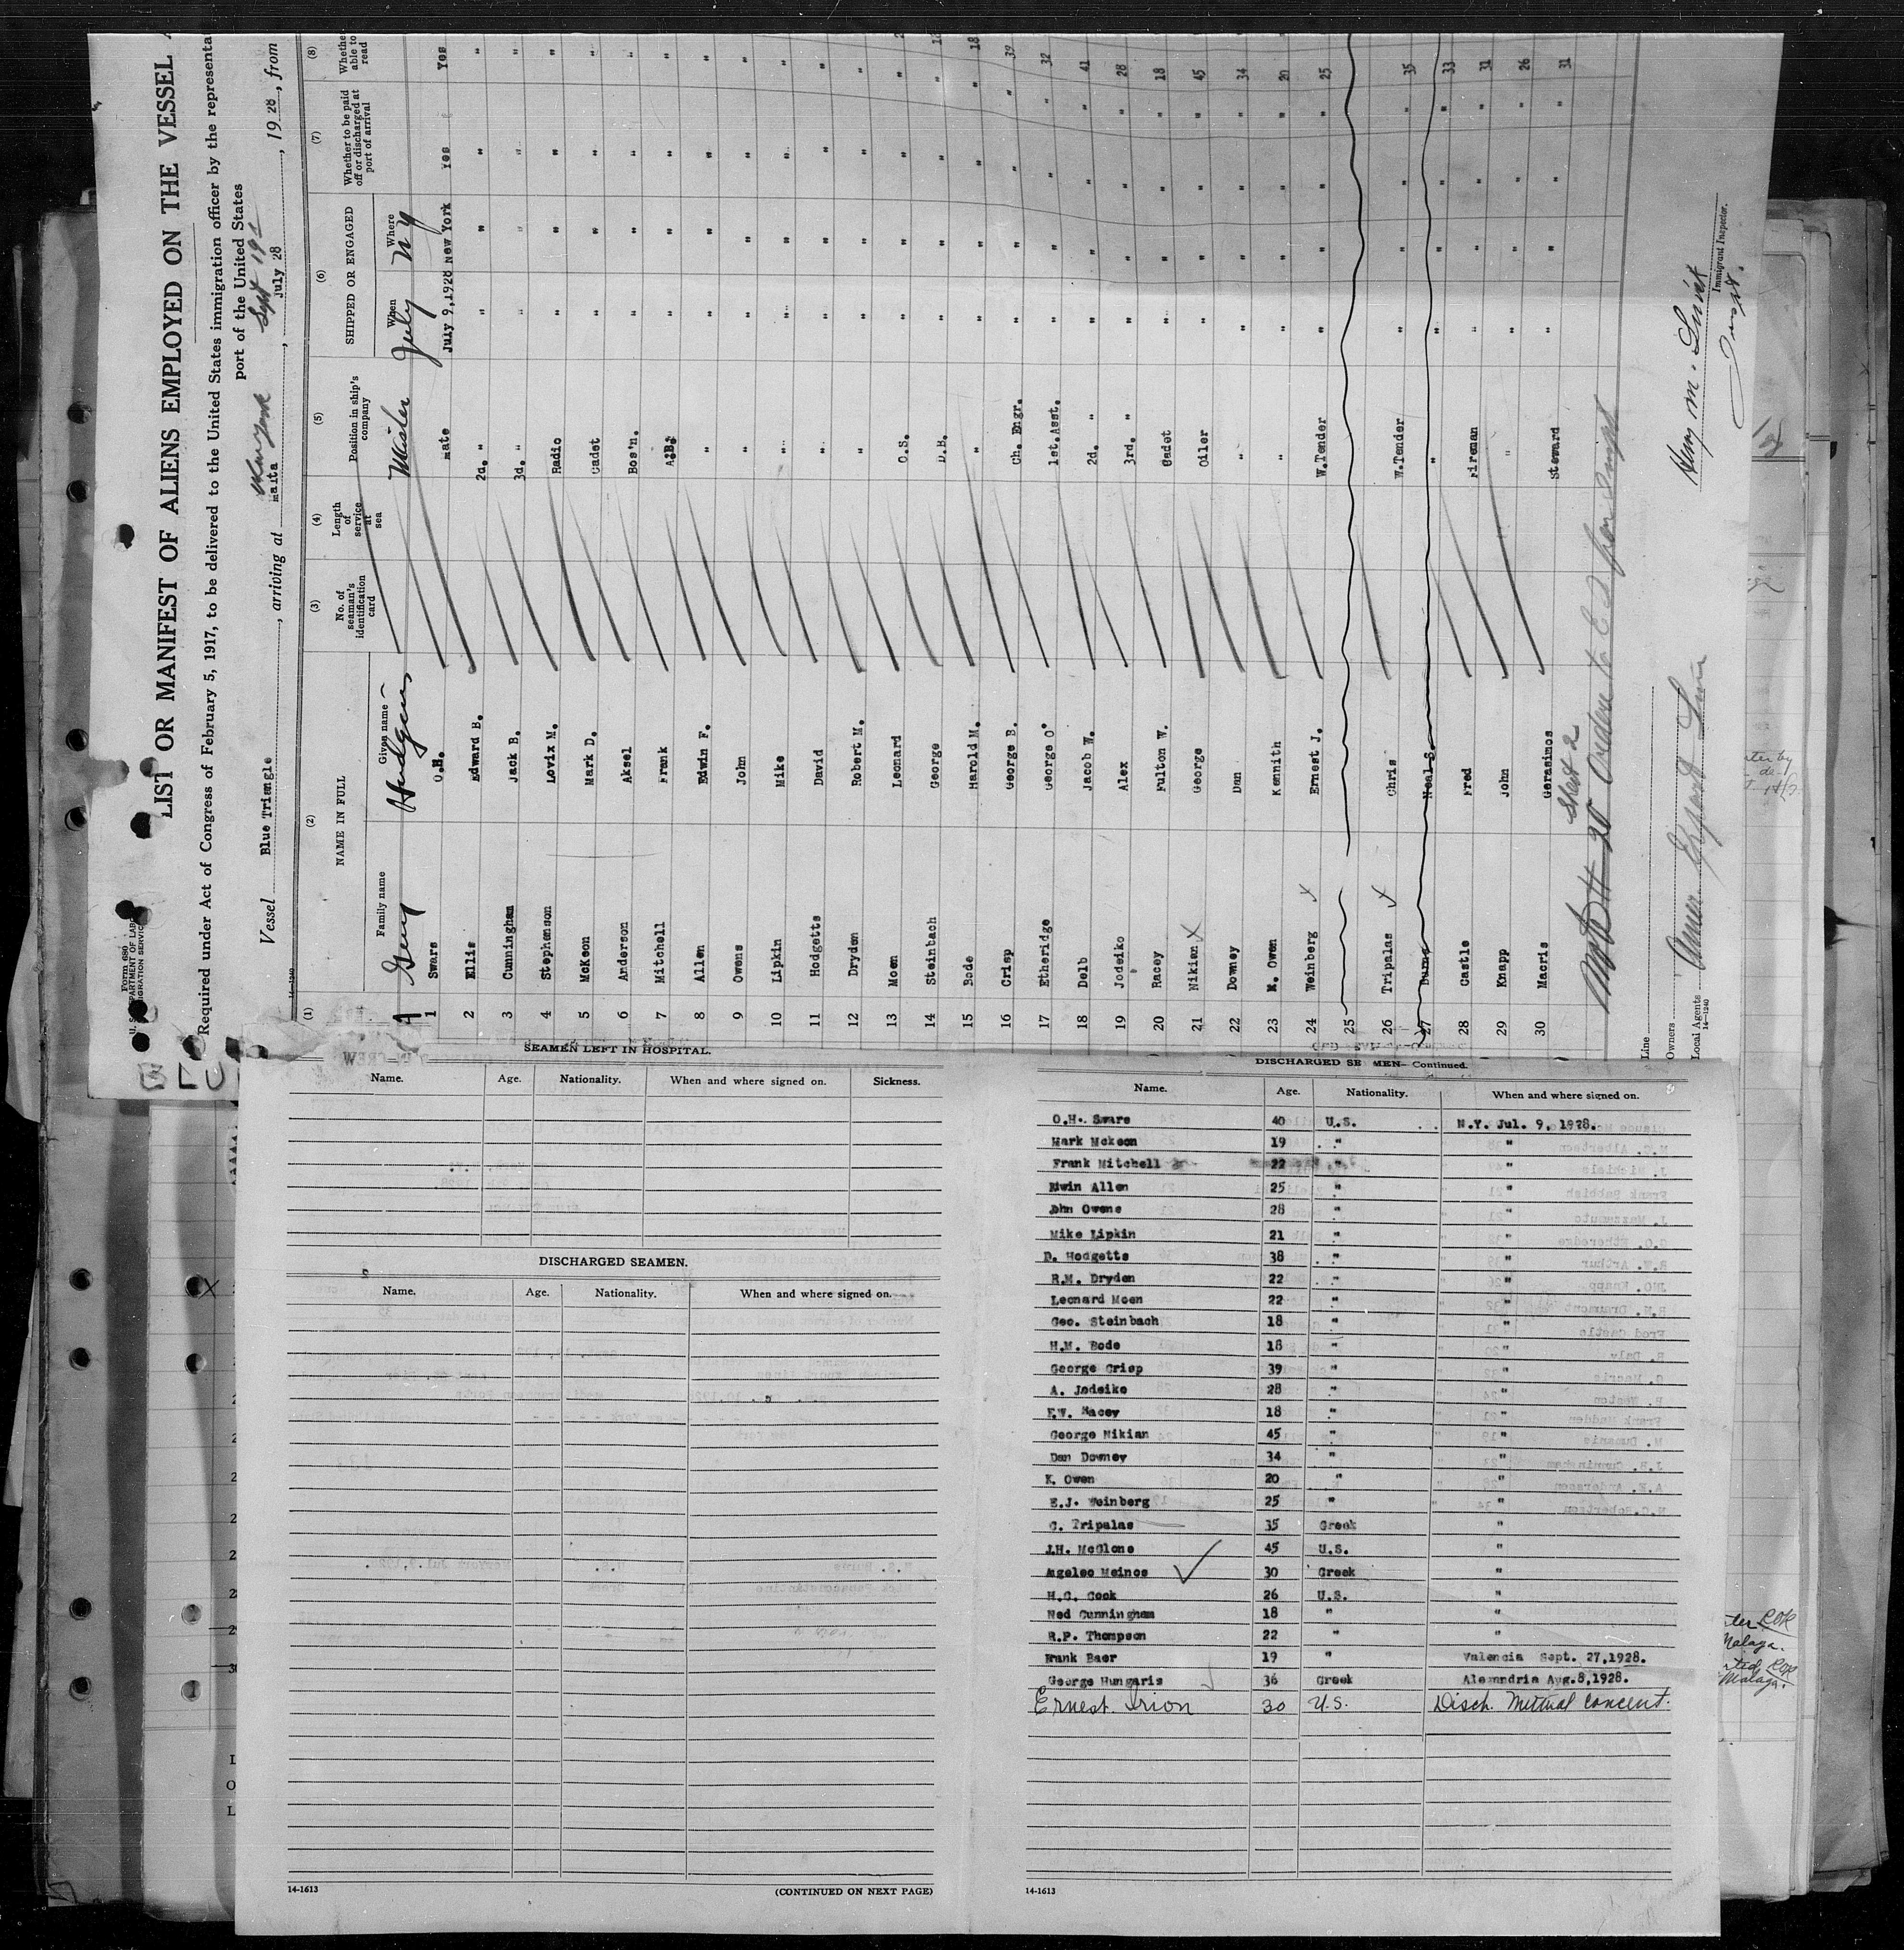 Form 680
U. S. DEPARTMENT OF LABOR
IMMIGRATION SERVICE
LIST OR MANIFEST OF ALIENS EMPLOYED ON THE VESSEL
Required under Act of Congress of February 5, 1917, to be delivered to the United States immigration officer by the representa
port of the United States
Vessel Blue Triangle, arriving at New York Sept 19, 1928, from
malta July 28
14-1240
(1) (2) (3) (4) (5) (6) (7) (8)
NAME IN FULL
Family name Given name
No. of seaman's identification card
Length of service at sea
Position in ship's company
SHIPPED OR ENGAGED
When Where
Whether to be paid off or discharged at port of arrival
Whether able to read
A Gury Hudgins Master July NY
1 Swars O.H. mate July 9,1928 New York Yes Yes
2 Ellis Edward B. 2d. " " " " "
3 Cunningham Jack B. 3d. " " " " "
4 Stephenson Lovix M. Radio " " " "
5 McKeon Mark D. Cadet " " " "
6 Anderson Aksel Bos'n. " " " "
7 Mitchell Frank A.B. " " " "
8 Allen Edwin F. " " " " "
9 Owens John " " " " "
10 Lipkin Mike " " " " "
11 Hodgetts David " " " " "
12 Dryden Robert M. " " " " "
13 Moen Leonard O.S. " " " "
14 Steinbach George D.B. " " " "
15 Bode Harold M. " " " " " 18
16 Crisp George B. Ch. Engr. " " " " 39
17 Etheridge George O. 1st.Asst. " " " " 32
18 Delb Jacob W. 2d. " " " " " 41
19 Jodeiko Alex 3rd. " " " " " 28
20 Racey Fulton W. Cadet " " " " 18
21 Nikian X George Oiler " " " " 45
22 Downey Dan " " " " " 34
23 K. Owen Kennith " " " " " 20
24 Weinberg X Ernest J. W.Tender " " " " 25
25
26 Tripalas X Chris W.Tender " " " " 35
27 Burns Neal S. " " " " " 33
28 Castle Fred Fireman " " " " 31
29 Knapp John " " " " " 26
30 Macris Gerasimos Steward " " " " 31
Sheet 2
Line
Owners
Local Agents Amer. Export Line
14-1240
Immigrant Inspector.
SEAMEN LEFT IN HOSPITAL.
Name. Age. Nationality. When and where signed on. Sickness.
DISCHARGED SEAMEN.
Name. Age. Nationality. When and where signed on.
14-1613 (CONTINUED ON NEXT PAGE)
DISCHARGED SEAMEN—Continued.
Name. Age. Nationality. When and where signed on.
O.H. Swars 40 U.S. N.Y. Jul. 9, 1928.
Mark Mckeon 19 " "
Frank Mitchell 22 " "
Edwin Allen 25 " "
John Owens 28 " "
Mike Lipkin 21 " "
D. Hodgetts 38 " "
R.M. Dryden 22 " "
Leonard Moen 22 " "
Geo. Steinbach 18 " "
H.M. Bode 18 " "
George Crisp 39 " "
A. Jodeiko 28 " "
F.W. Racey 18 " "
George Nikian 45 " "
Dan Downey 34 " "
K. Owen 20 " "
E.J. Weinberg 25 " "
C. Tripalas 35 Greek "
J.H. McGlone 45 U.S. "
Angelec Meinos 30 Greek "
H.C. Cook 26 U.S. "
Ned Cunningham 18 " "
R.P. Thompson 22 " "
Frank Baer 19 " Valencia Sept. 27,1928.
George Hungaris 36 Greek Alexandria Aug.8,1928.
Ernest Irion 30 U.S. Disch. Mutual Concent.
14-1613